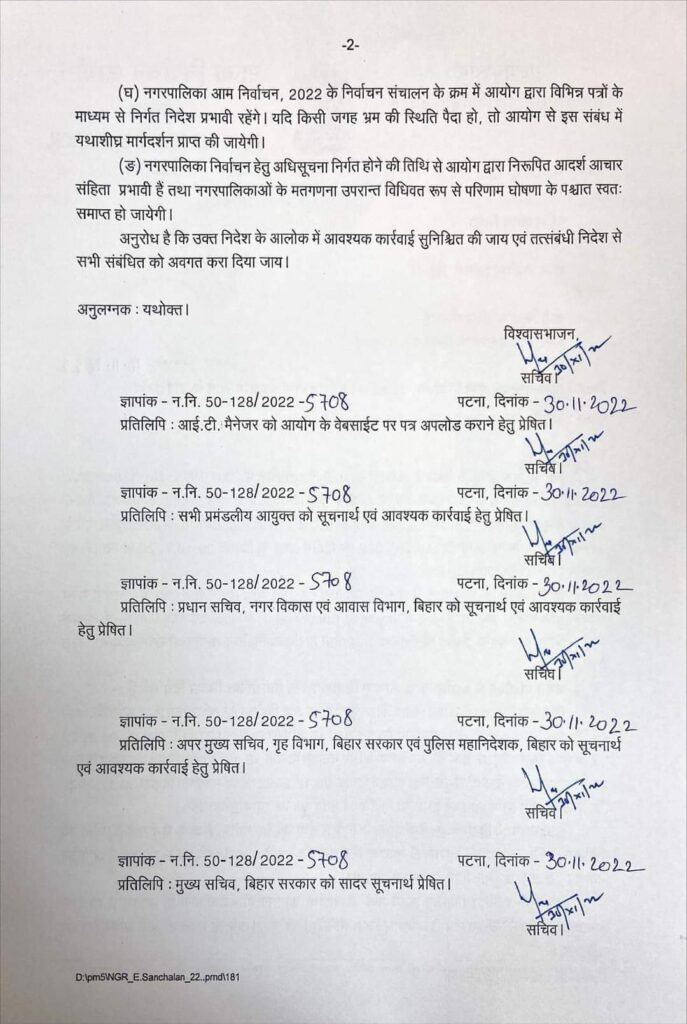 -2-
(घ) नगरपालिका आम निर्वाचन, 2022 के निर्वाचन संचालन के क्रम में आयोग द्वारा विभिन्न पत्रों के
माध्यम से निर्गत निदेश प्रभावी रहेंगे। यदि किसी जगह भ्रम की स्थिति पैदा हो, तो आयोग से इस संबंध में
यथाशीघ्र मार्गदर्शन प्राप्त की जायेगी।
(ङ) नगरपालिका निर्वाचन हेतु अधिसूचना निर्गत होने की तिथि से आयोग द्वारा निरूपित आदर्श आचार
संहिता प्रभावी हैं तथा नगरपालिकाओं के मतगणना उपरान्त विधिवत रूप से परिणाम घोषणा के पश्चात स्वतः
समाप्त हो जायेगी।
अनुरोध है कि उक्त निदेश के आलोक में आवश्यक कार्रवाई सुनिश्चित की जाय एवं तत्संबंधी निदेश से
सभी संबंधित को अवगत करा दिया जाय।
अनुलग्नक : यथोक्त।
विश्वासभाजन,
30/XI/22
सचिव।
ज्ञापांक - न.नि. 50-128/2022 -5708 पटना, दिनांक - 30.11.2022
प्रतिलिपि : आई.टी. मैनेजर को आयोग के वेबसाईट पर पत्र अपलोड कराने हेतु प्रेषित।
30/XI/22
सचिव।
ज्ञापांक - न.नि. 50-128/2022 -5708 पटना, दिनांक - 30.11.2022
प्रतिलिपि : सभी प्रमंडलीय आयुक्त को सूचनार्थ एवं आवश्यक कार्रवाई हेतु प्रेषित।
30/XI/22
सचिव।
ज्ञापांक - न.नि. 50-128/2022 -5708 पटना, दिनांक - 30.11.2022
प्रतिलिपि : प्रधान सचिव, नगर विकास एवं आवास विभाग, बिहार को सूचनार्थ एवं आवश्यक कार्रवाई
हेतु प्रेषित।
30/XI/22
सचिव।
ज्ञापांक - न.नि. 50-128/2022 -5708 पटना, दिनांक - 30.11.2022
प्रतिलिपि : अपर मुख्य सचिव, गृह विभाग, बिहार सरकार एवं पुलिस महानिदेशक, बिहार को सूचनार्थ
एवं आवश्यक कार्रवाई हेतु प्रेषित।
30/XI/22
सचिव।
ज्ञापांक - न.नि. 50-128/2022 -5708 पटना, दिनांक - 30.11.2022
प्रतिलिपि : मुख्य सचिव, बिहार सरकार को सादर सूचनार्थ प्रेषित।
30/XI/22
सचिव।
D:\pm5\NGR_E.Sanchalan_22..pmd\181